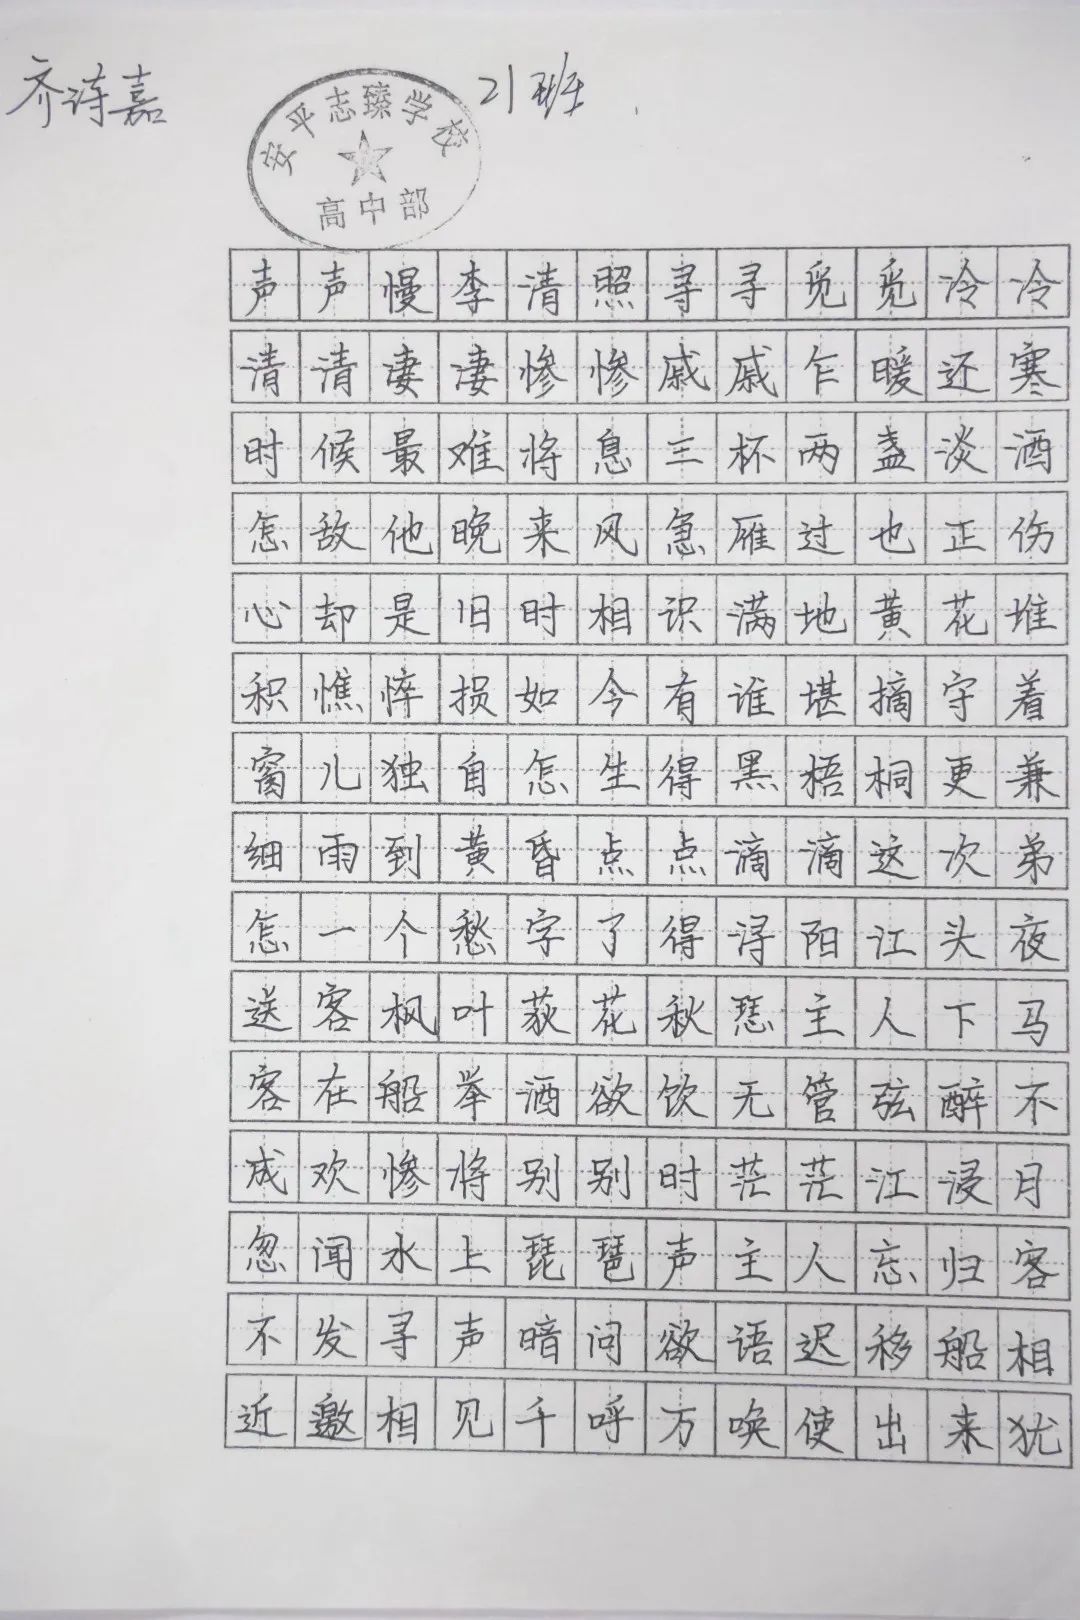 齐诗嘉
21班
安平志臻学校
高中部
声声慢李清照寻寻觅觅冷冷
清清凄凄惨惨戚戚乍暖还寒
时候最难将息三杯两盏淡酒
怎敌他晚来风急雁过也正伤
心却是旧时相识满地黄花堆
积憔悴损如今有谁堪摘守着
窗儿独自怎生得黑梧桐更兼
细雨到黄昏点点滴滴这次弟
怎一个愁字了得浔阳江头夜
送客枫叶荻花秋瑟主人下马
客在船举酒欲饮无管弦醉不
成欢惨将别别时茫茫江浸月
忽闻水上琵琶声主人忘归客
不发寻声暗问欲语迟移船相
近邀相见千呼万唤使出来犹